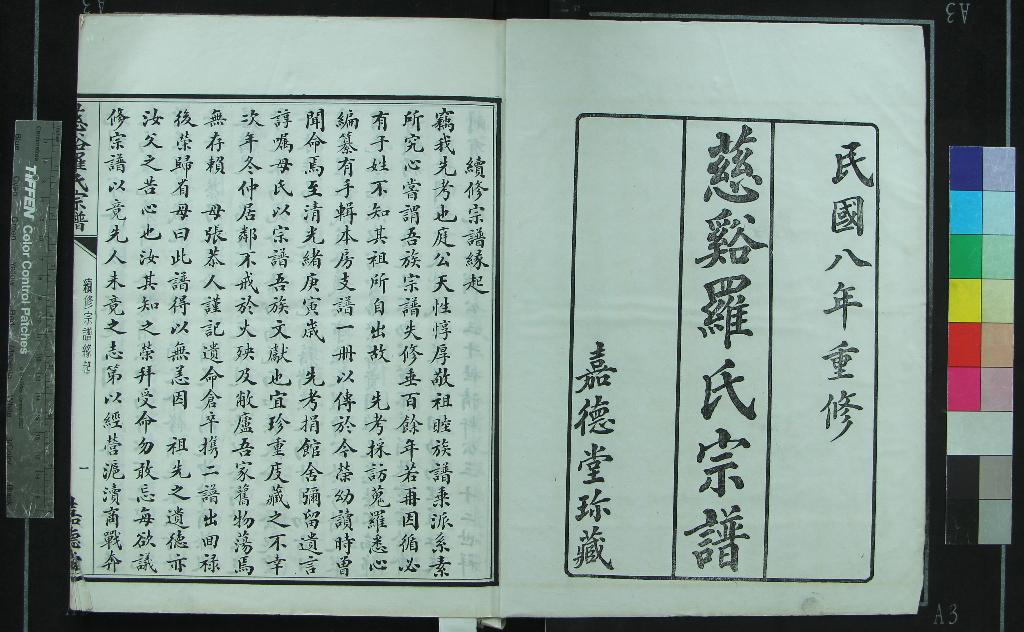 民國八年重修
慈谿羅氏宗譜
嘉德堂珎藏
續修宗譜緣起
竊我先考也庭公天性惇厚敬祖睦族譜乘派系素
所究心嘗謂吾族宗譜失修垂百餘年若再因循必
有子姓不知其祖所自出故　先考採訪蒐羅悉心
編纂有手輯本房支譜一册以傳於今榮幼讀時曾
聞命焉至清光緒庚寅歲　先考捐館舍彌留遺言
諄囑母氏以宗譜吾族文獻也宜珍重庋藏之不幸
次年冬仲居鄰不戒於火殃及敝廬吾家舊物蕩焉
無存賴　母張恭人謹記遺命倉卒攜二譜出回祿
後榮歸省母曰此譜得以無恙因　祖先之遺德亦
汝父之苦心也汝其知之榮拜受命勿敢忘每欲議
修宗譜以竟先人未竟之志第以經營滬瀆商戰奔
慈谿羅氏宗譜
續修宗譜緣起
一
TIFFEN Color Control Patches
A3
A3